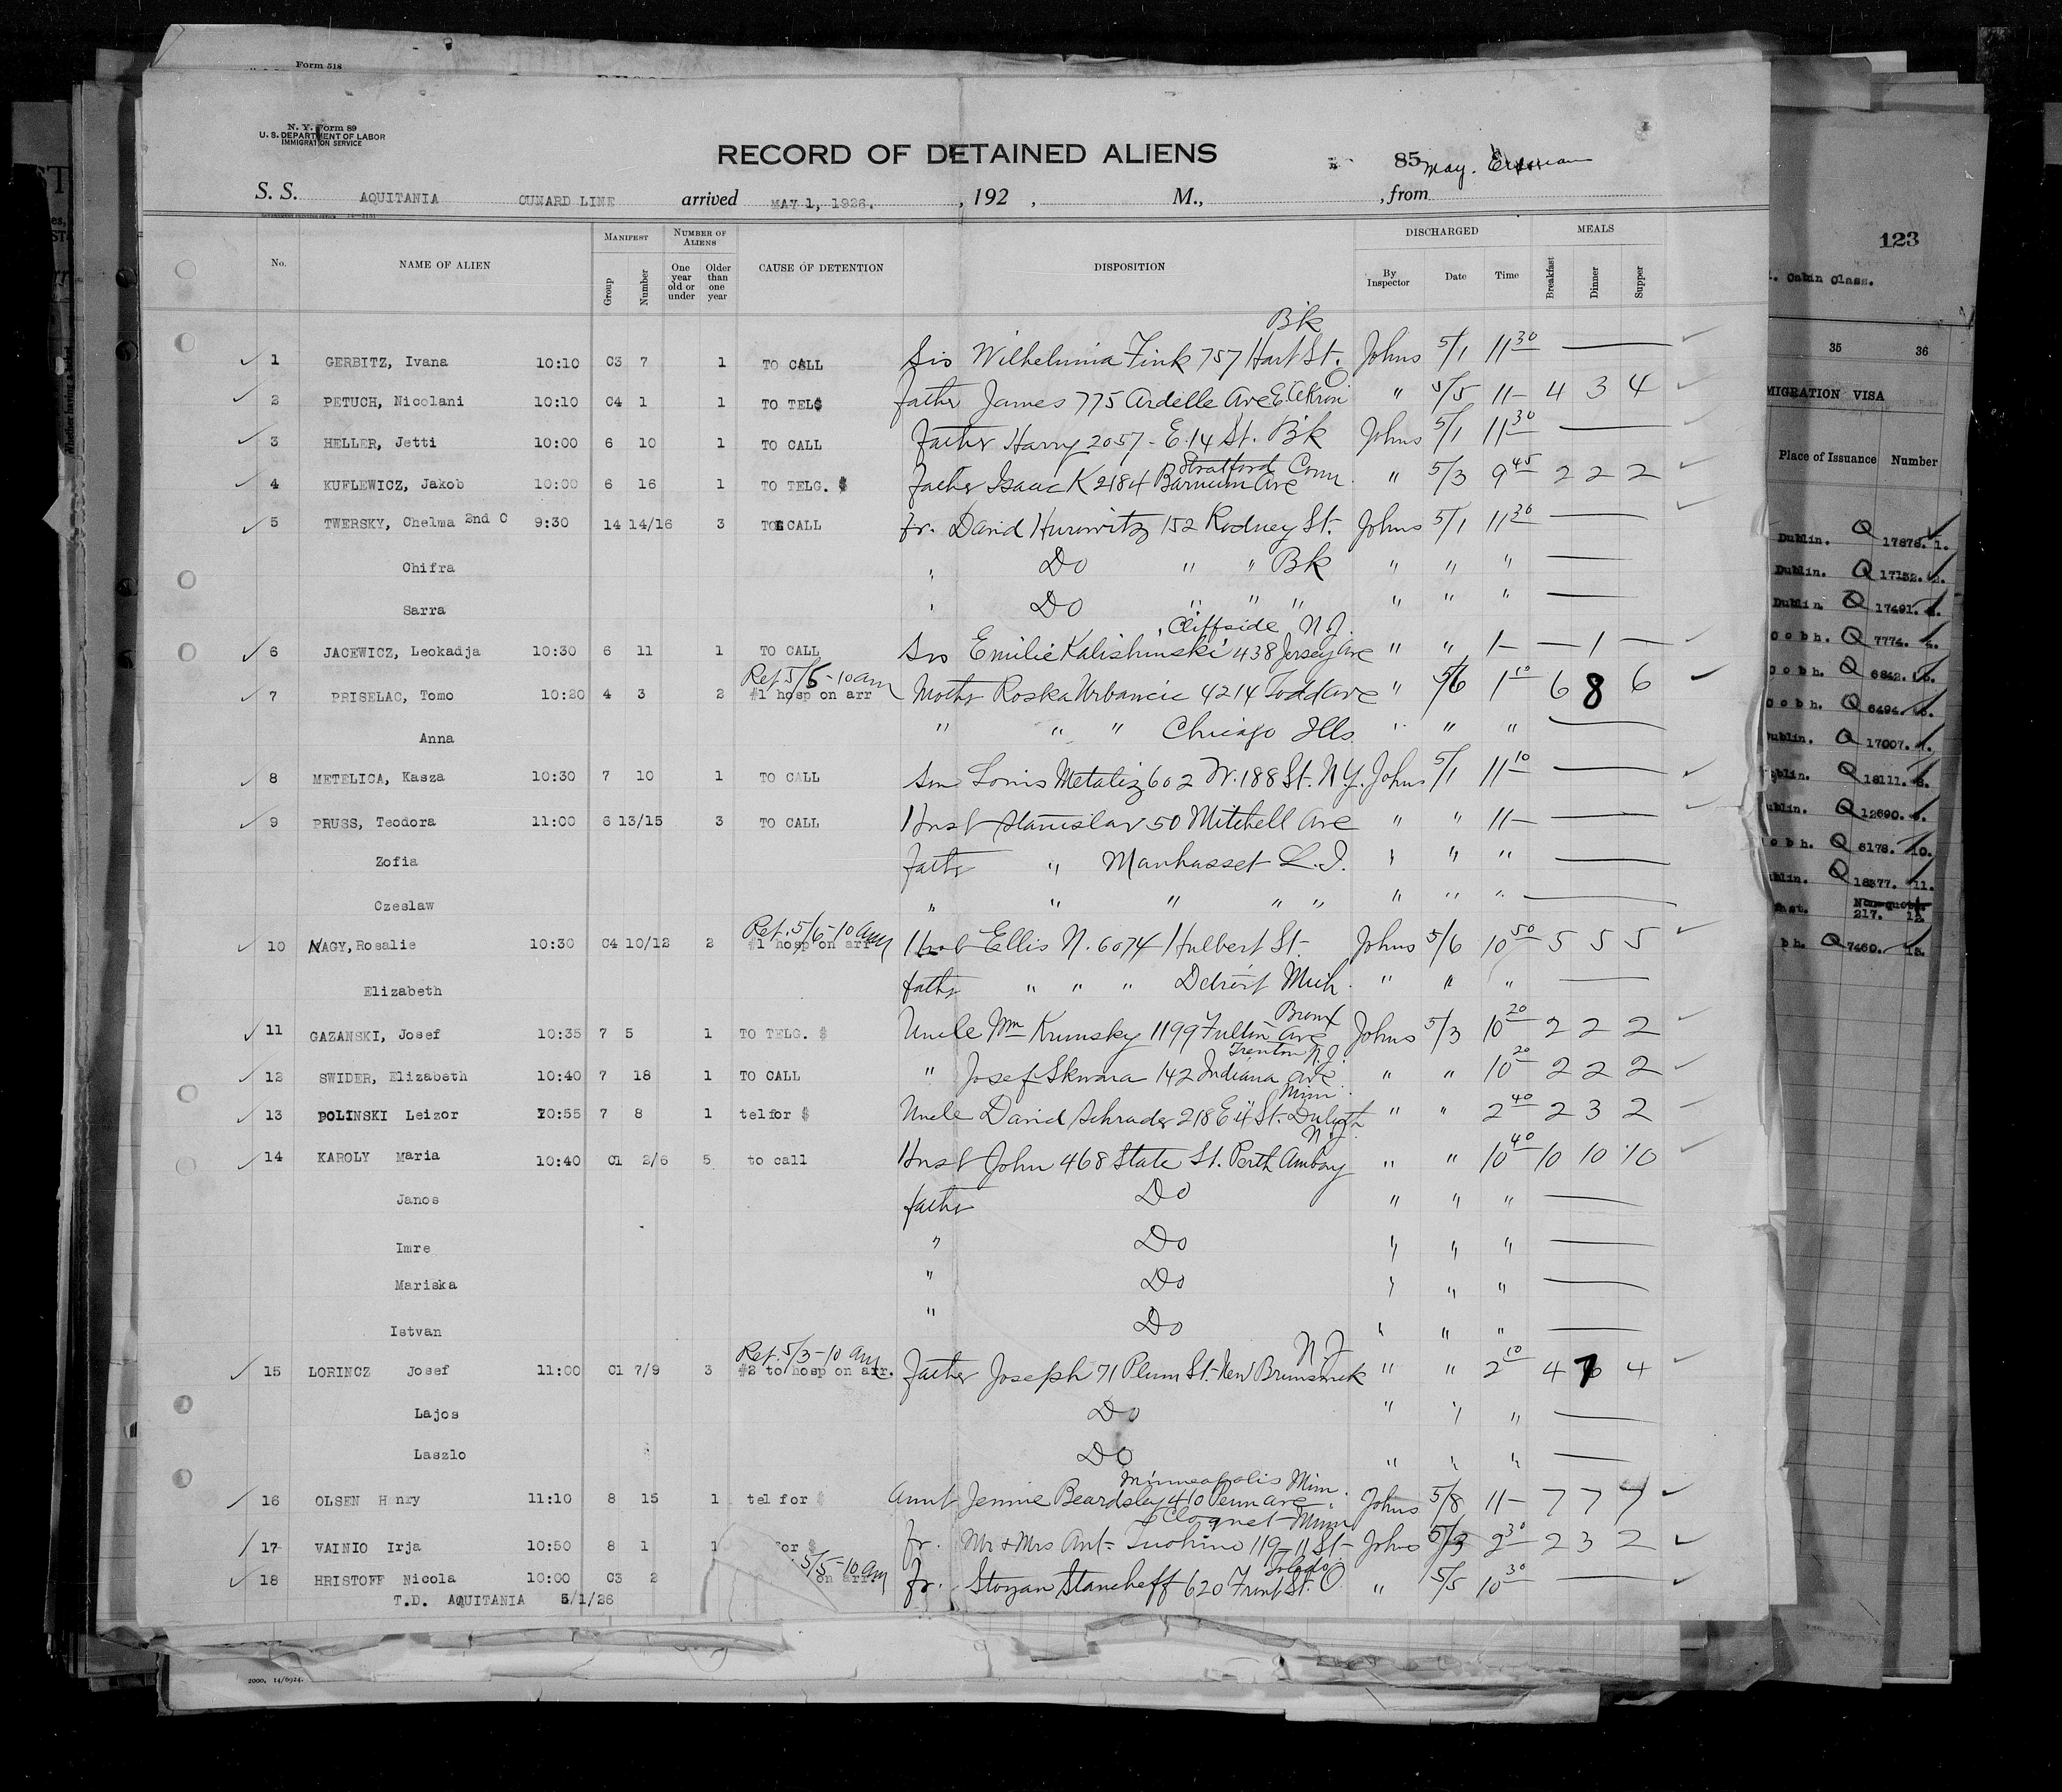 Form 518
N. Y. Form 89
U. S. DEPARTMENT OF LABOR
IMMIGRATION SERVICE
RECORD OF DETAINED ALIENS
85 May.
S. S. AQUITANIA CUNARD LINE arrived MAY 1, 1926. , 192 , M., , from
No. NAME OF ALIEN MANIFEST Group Number NUMBER OF ALIENS One year old or under Older than one year CAUSE OF DETENTION DISPOSITION DISCHARGED By Inspector Date Time MEALS Breakfast Dinner Supper
Bk
1 GERBITZ, Ivana 10:10 C3 7 1 TO CALL Sis Wilhelmina Fink 757 Hart St. Johns 5/1 11 30 —
2 PETUCH, Nicolani 10:10 C4 1 1 TO TEL$ Father James 775 Ardelle Ave E. Akron O " 5/5 11— 4 3 4
3 HELLER, Jetti 10:00 6 10 1 TO CALL Father Harry 2057 - E. 14 St. Bk Johns 5/1 11 30 —
Stratford Conn
4 KUFLEWICZ, Jakob 10:00 6 16 1 TO TELG. $ Father Isaac K 2184 Barnum Ave " 5/3 9 45 2 2 2
5 TWERSKY, Chelma 2nd C 9:30 14 14/16 3 TO CALL fr. David Hurowitz 152 Rodney St. Johns 5/1 11 30 —
Chifra " Do " " Bk " " " —
Sarra " Do " " " " " " —
Cliffside N.J.
6 JACEWICZ, Leokadja 10:30 6 11 1 TO CALL Sis Emilie Kalishinski 438 Jersey Ave " " 1— — 1 —
Ret 5/6 - 10 am
7 PRISELAC, Tomo 10:20 4 3 2 #1 hosp on arr Mother Roska Urbancic 4214 Todd Ave " 5/6 1 10 6 8 6
Anna " " " Chicago Ills. " " " —
8 METELICA, Kasza 10:30 7 10 1 TO CALL Son Louis Metaliz 602 W. 188 St. N.Y. Johns 5/1 11 10 —
9 PRUSS, Teodora 11:00 6 13/15 3 TO CALL Husb Stanislav 50 Mitchell Ave " " 11— —
Zofia father " Manhasset L.I. " " " —
Czeslaw " " " " " " " " —
Ret. 5/6 - 10 am
10 NAGY, Rosalie 10:30 C4 10/12 2 #1 hosp on arr Husb Ellis N. 6074 Hulbert St. Johns 5/6 10 50 5 5 5
Elizabeth father " " " Detroit Mich. " " " —
Bronx
11 GAZANSKI, Josef 10:35 7 5 1 TO TELG. $ Uncle Wm Krunsky 1199 Fulton Ave Johns 5/3 10 20 2 2 2
Trenton N.J.
12 SWIDER, Elizabeth 10:40 7 18 1 TO CALL " Josef Skwara 142 Indiana Ave. " " 10 20 2 2 2
Minn
13 POLINSKI Leizor 10:55 7 8 1 tel for $ Uncle David Schrader 218 E 4 St. Duluth " " 2 40 2 3 2
N.J.
14 KAROLY Maria 10:40 C1 2/6 5 to call Husb John 468 State St. Perth Amboy " " 10 40 10 10 10
Janos father Do " " " —
Imre " Do " " " —
Mariska " Do " " " —
Istvan " Do " " " —
Ret. 5/3 - 10 am N J
15 LORINCZ Josef 11:00 C1 7/9 3 #2 to hosp on arr. Father Joseph 71 Plum St. New Brunswick " " 2 10 4 7 4
Lajos Do " " " —
Laszlo Do " " " —
Minneapolis Minn.
16 OLSEN H nry 11:10 8 15 1 tel for $ Aunt Jennie Beardsley 410 Penn Ave. Johns 5/8 11— 7 7 7
Cloquet Minn
17 VAINIO Irja 10:50 8 1 1 for $ fr. Mr & Mrs Ant. 119-11 St. Johns 5/3 2 30 2 3 2
5/5 - 10 am Toledo
18 HRISTOFF Nicola 10:00 C3 2 on arr. fr. Stoyan Stancheff 620 Front St. O. " 5/5 10 30 —
T.D. AQUITANIA 5/1/26
2000, 14/6924.
123
Cabin Class.
35 36
MIGRATION VISA
Place of Issuance Number
Dublin. Q 17878. 1.
Dublin. Q 17152. 2.
Dublin. Q 17491. 3.
Cobh. Q 7774. 4.
Cobh. Q 6842. 5.
Cobh. Q 6494. 6.
Dublin. Q 17007. 7.
blin. Q 18111. 8.
ublin. Q 12690. 9.
obh. Q 6178. 10.
ublin. Q 18377. 11.
Non-quota
217. 12.
bh. Q 7460. 13.